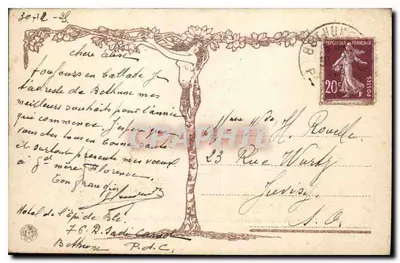 30-12-25
chère amie
Toujours en ballade j'
adresse de Bethune mes
meilleurs souhaits pour l'année
qui commence. J'espère
vous êtes tous en bonne santé
et surtout présente mes vœux
à gd mère Florence.
Ton grand
Hotel de l'Epi de Blé
76 R. Sadi Carnot
Bethune P.d.C.
BETHUNE
REPUBLIQUE FRANÇAISE
20c
POSTES
H. Rouelle
23 Rue Wurtz
Juvisy
S. O.